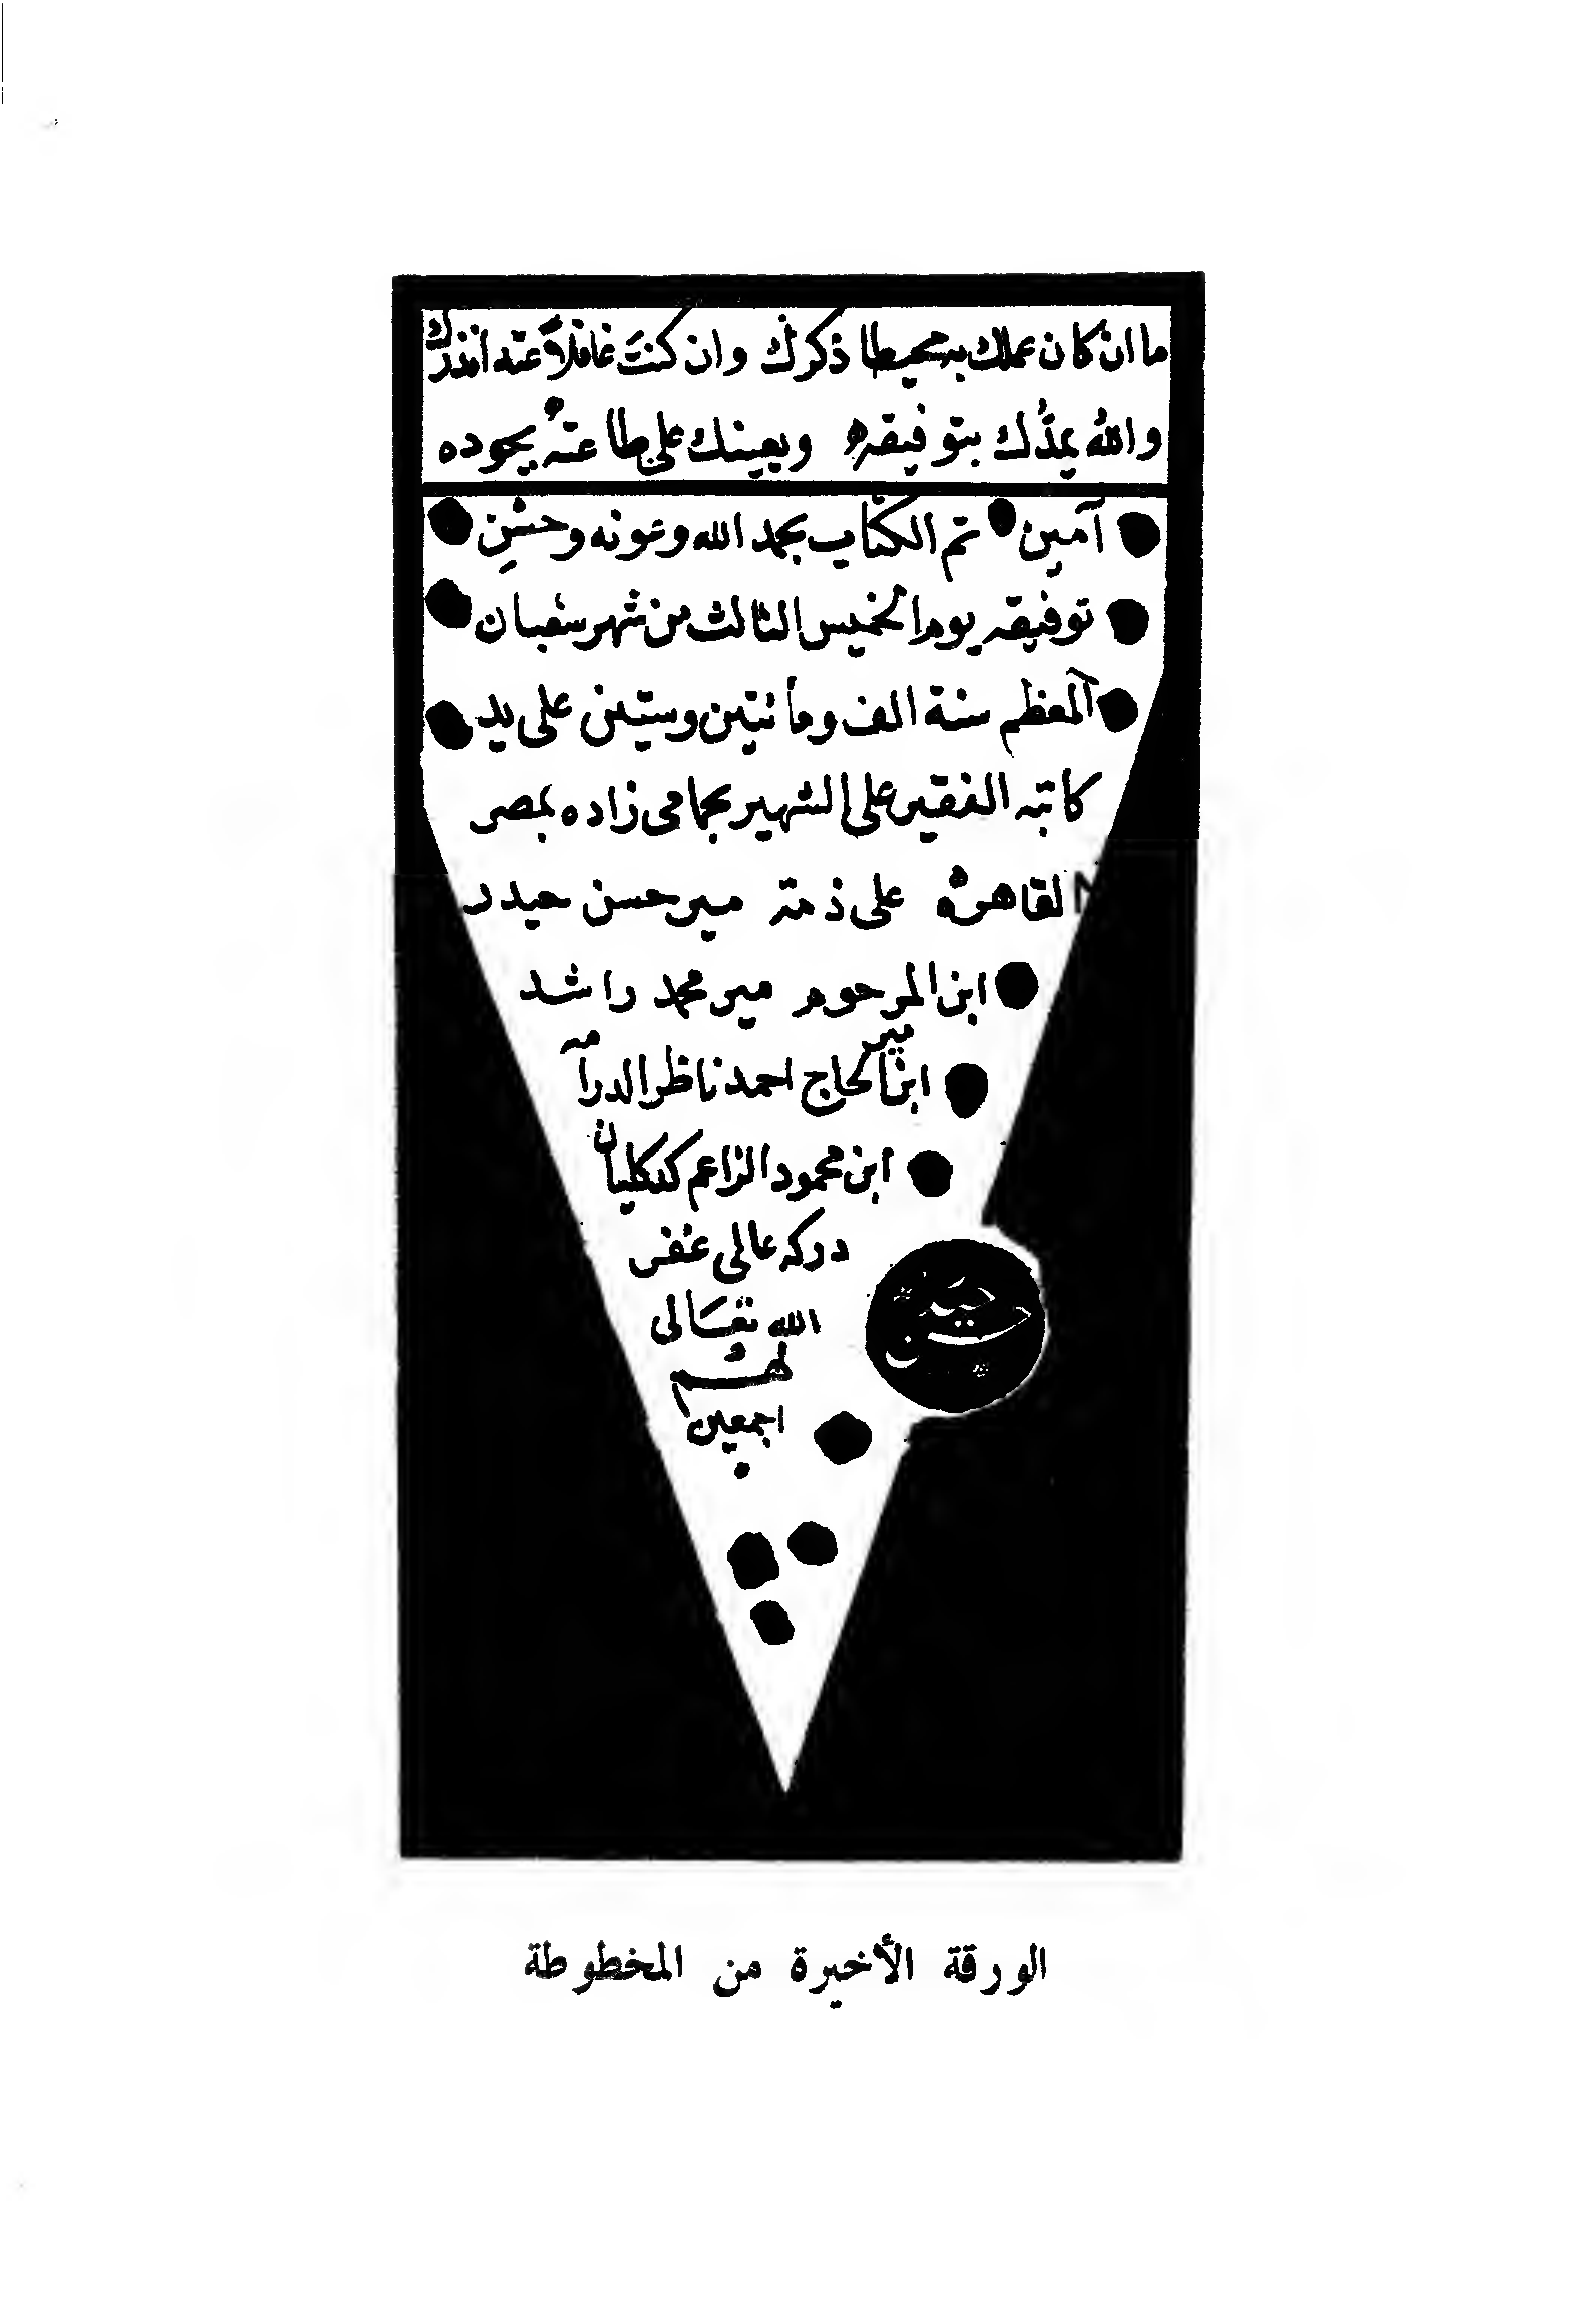 ما ان كان عملك به محيطا ذكرك وان كنت غافلاً عنه أنذرك
والله يمدُّك بتوفيقه ويعينك على طاعته بجوده
آمين تم الكتاب بحمد الله وعونه وحسن
توفيقه يوم الخميس الثالث من شهر شعبان
المعظم سنة الف ومائتين وستين على يد
كاتبه الفقير على الشهير بجامى زاده بمصر
القاهرة على ذمة مير حسن حيدر
ابن المرحوم مير محمد راشد
ابن مير الحاج احمد ناظر الدرامه
ابن محمود الزاعم
دركه عالى غفر
الله تعالى
لهم
اجمعين
الورقة الأخيرة من المخطوطة